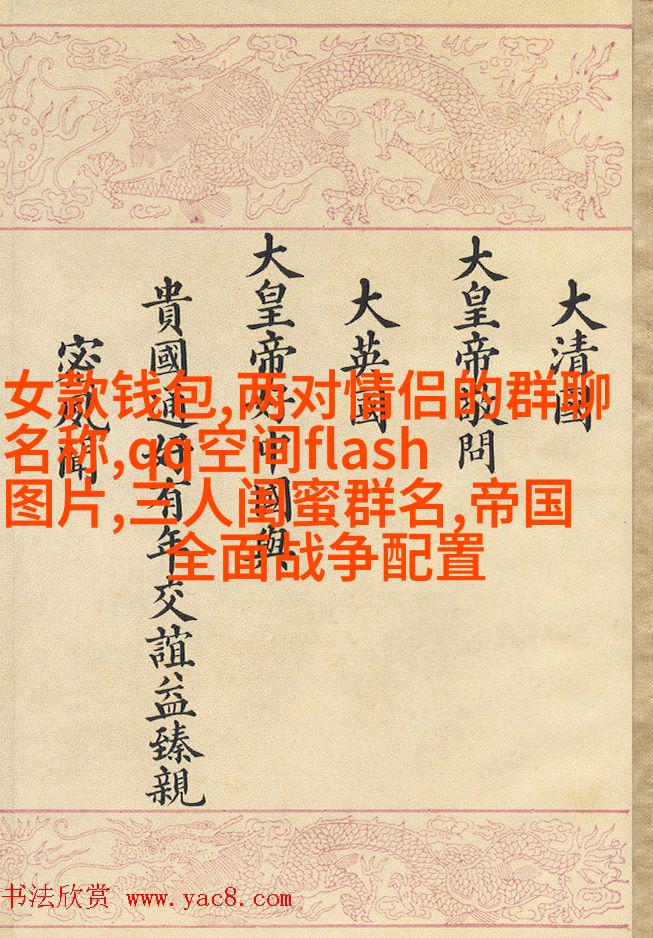 大清國
大皇帝敬問
大英國
大皇帝好中國與
貴國通好有年交誼益臻親
宻聞
女款钱包,两对情侣的群聊
名称,qq空间flash
图片,三人闺蜜群名,帝国
全面战争配置
书法欣赏 www.yac8.com